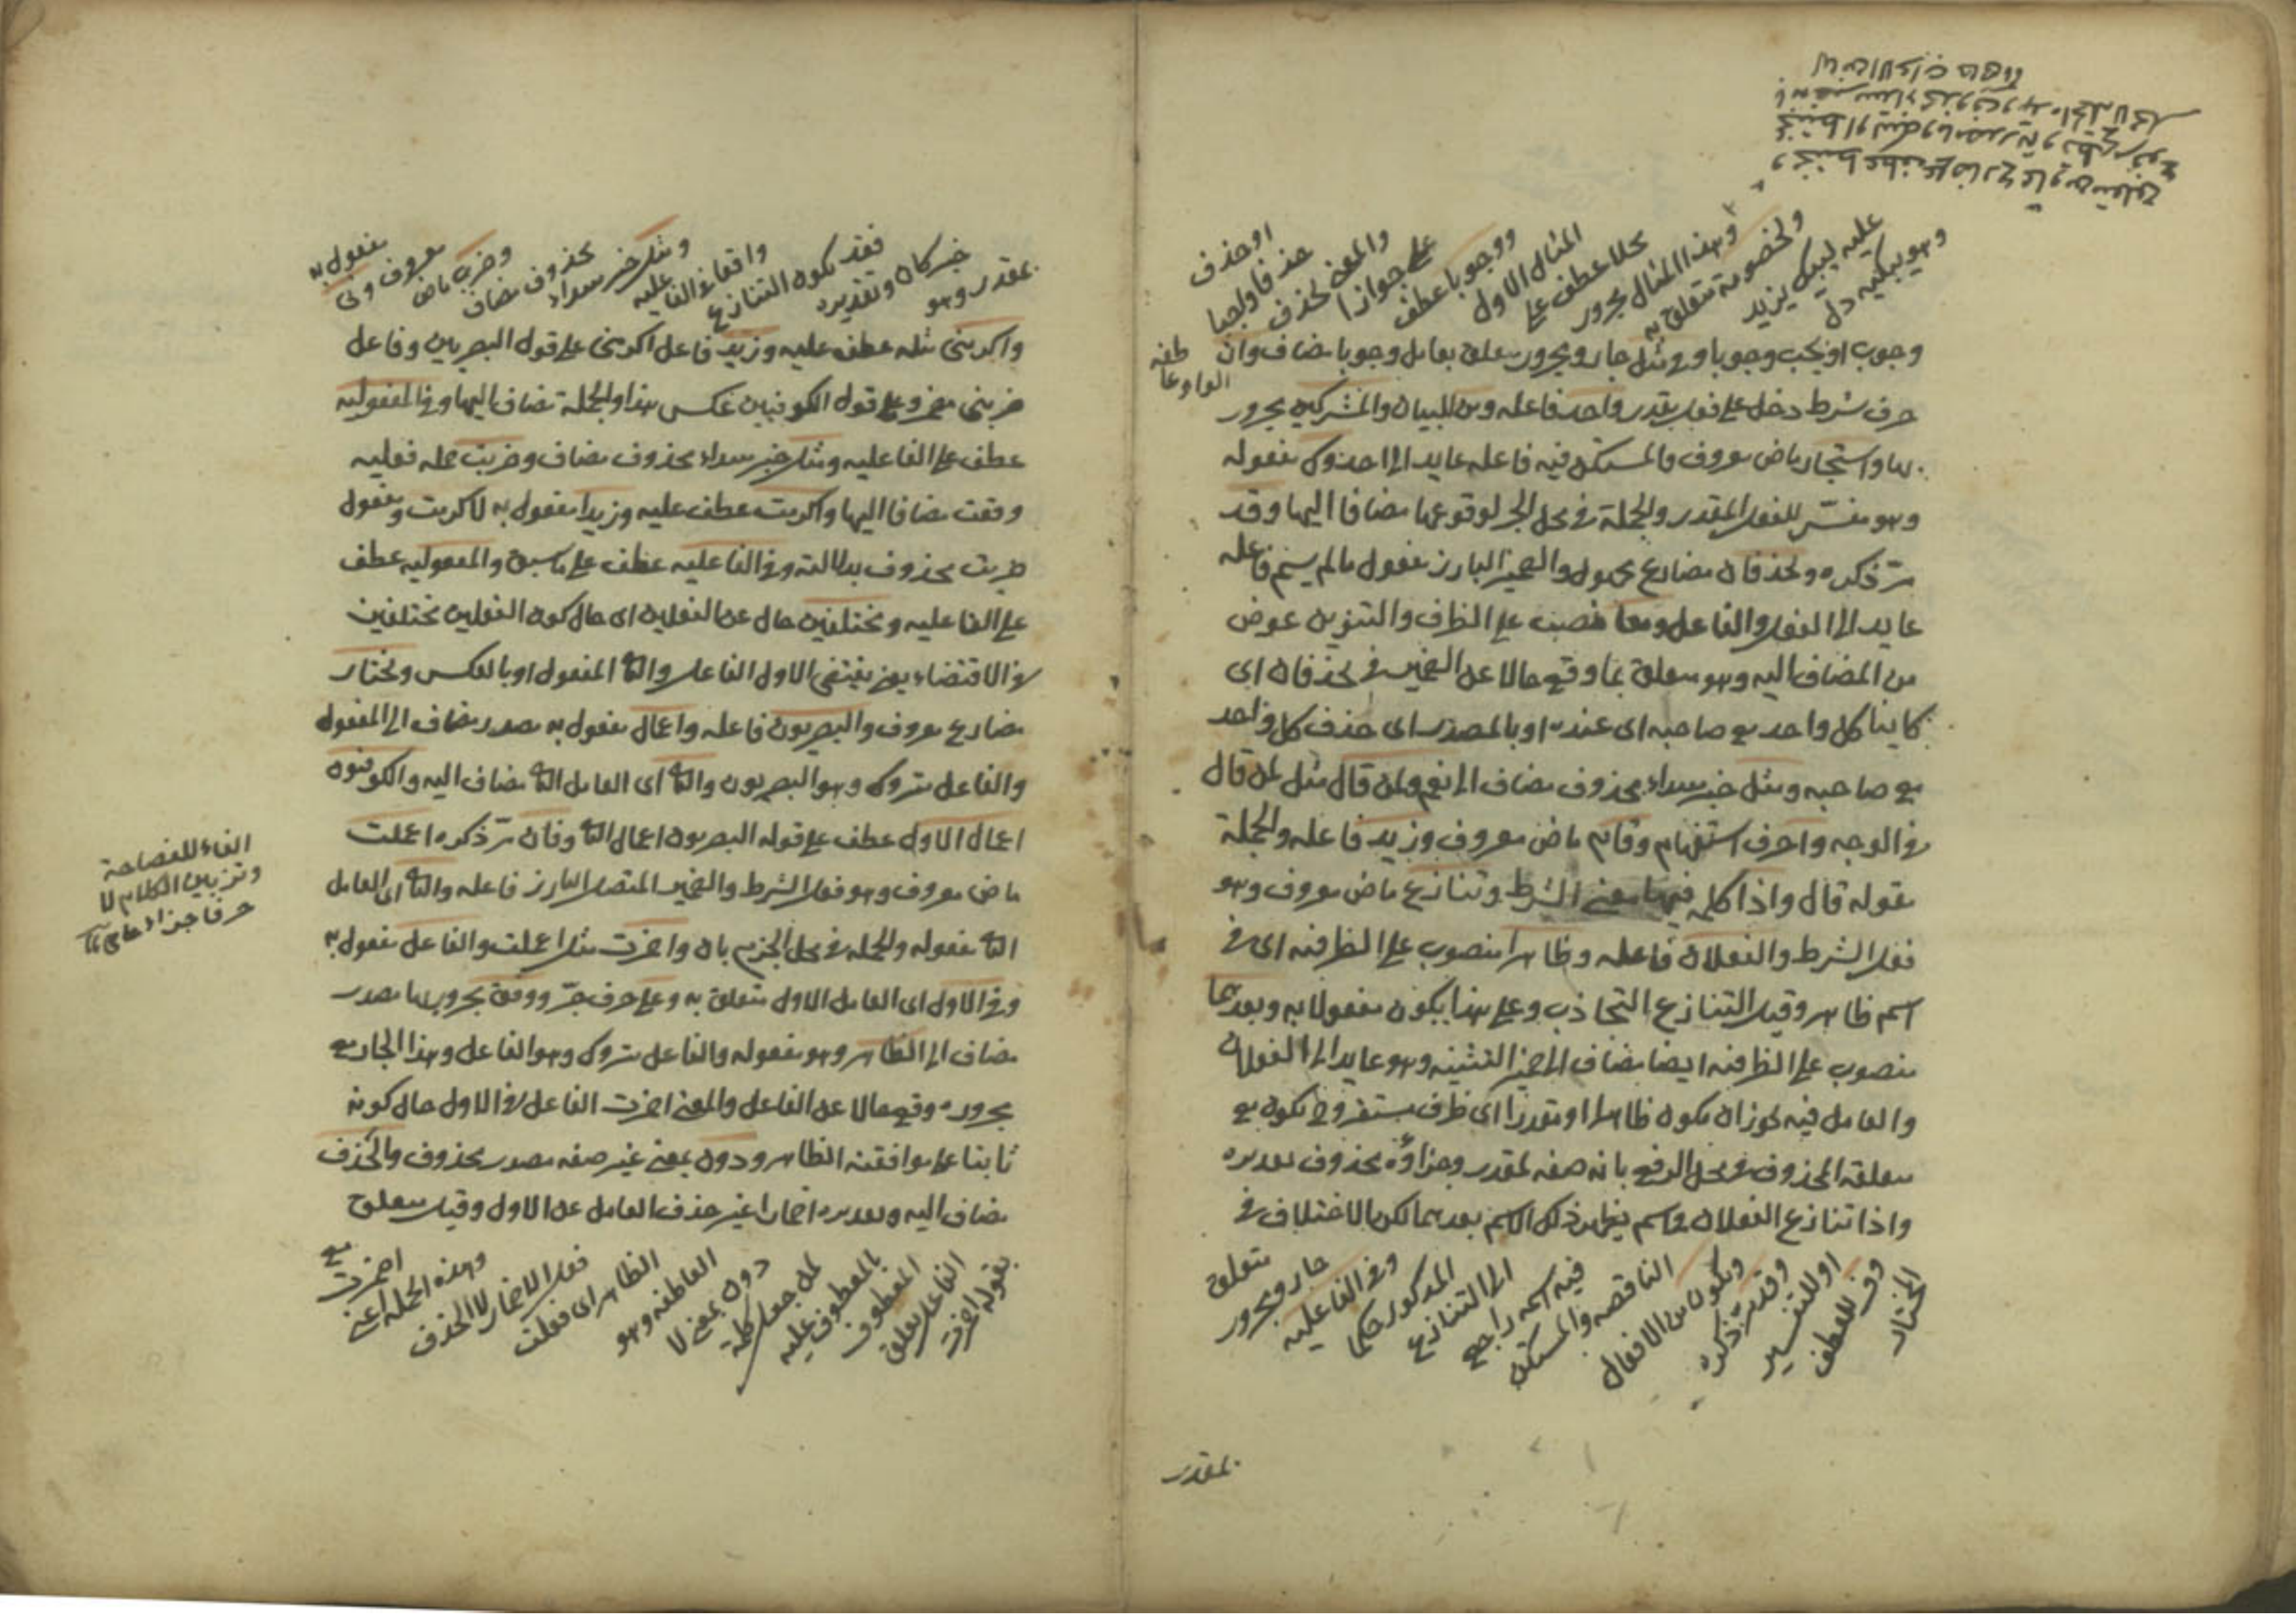 وهو يبكيه دل
عليه ليبك يزيد
ولخصومة متعلق به
وهذا المثال مجرور
محلا عطف على
المثال الاول
ووجوبا عطف
على جوازا
والمعنى يحذف
حذفا واجبا
او حذف
وجوب او يجب وجوبا وفي مثل جار ومجرور متعلق بعامل وجوبا مضاف وان
حرف شرط دخل على فعل مقدر واحد فاعله ومن للبيان والمشركين مجرور
بها واستجار ماض معروف والمستكن فيه فاعله عايد الى احد وك مفعوله
وهو مفسر للفعل المقدر والجملة في محل الجر لوقوعها مضافا اليها وقد
مر ذكره ويحذفان مضارع مجهول والضمير البارز مفعول ما لم يسم فاعله
عايد الى الفعل والفاعل ومعا نصب على الظرف والتنوين عوض
من المضاف اليه وهو متعلق بما وقع حالا عن الضمير في يحذفان اى
كاينا كل واحد مع صاحبه اى عنده او بالمصدر اى حذف كل واحد
مع صاحبه ومثل خبر مبتداء محذوف مضاف الى نعم ولمن قال مثل لمن قال
في الوجه وا حرف استفهام وقام ماض معروف وزيد فاعله والجملة
مقوله قال واذا كلمه فيها معنى الشرط وتنازع ماض معروف وهو
فعل الشرط والفعلان فاعله وظاهرا منصوب على الظرفيه اى في
اسم ظاهر وقيل التنازع التجاذب وعلى هذا يكون مفعولا به وبعدهما
منصوب على الظرفيه ايضا مضاف الى ضمير التثنيه وهو عايد الى الفعلان
والعامل فيه يجوز ان يكون ظاهرا او مقدرا اى ظرف مستقر وح يكون مع
متعلقه المحذوف في محل الرفع بانه صفه لمقدر وجزاؤه محذوف تقديره
واذا تنازع الفعلان في اسم يظهر ذلك الاسم بعدهما لكن الاختلاف في
المختار
وفي للعطف
او للتفسير
وقد مر ذكره
ويكون من الافعال
الناقصه والمستكن
فيه اسمه راجع
الى التنازع
المذكور حكما
وفي الفاعليه
جار ومجرور
متعلق
بمقدر
بمقدر وهو
خبر كان وتقديره
فقد يكون التنازع
واقعا في الفاعليه
ومثل خبر مبتداء
محذوف مضاف
وضرب ماض
معروف ونى
مفعول به
واكرمنى مثله عطف عليه وزيد فاعل اكرمنى على قول البصريين وفاعل
ضربنى مضمر وعلى قول الكوفيين عكس هذا والجملة مضاف اليها وفي المفعوليه
عطف على الفاعليه ومثل خبر مبتداء محذوف مضاف وضربت جمله فعليه
وقعت مضافا اليها واكرمت عطف عليه وزيدا مفعول به لاكرمت ومفعول
ضربت محذوف بدلالته وفي الفاعليه عطف على ما سبق والمفعوليه عطف
على الفاعليه ومختلفين حال عن الفعلين اى حال كون الفعلين مختلفين
في الاقتضاء يعنى يقتضى الاول الفاعل والثا المفعول او بالعكس ويختار
مضارع معروف والبصريون فاعله واعمال مفعول به مصدر مضاف الى المفعول
والفاعل متروك وهو البصريون والثا اى العامل الثا مضاف اليه والكوفيون
اعمال الاول عطف على قوله البصريون اعمال الثا وفان مر ذكره اعملت
ماض معروف وهو فعل الشرط والضمير المتصل البارز فاعله والثا اى العامل
الثا مفعوله والجمله في محل الجزم بان واضمرت مثل اعملت والفاعل مفعول به
وفي الاول اى العامل الاول متعلق به وعلى حرف جر ووفق مجرور بها مصدر
مضاف الى الظاهر وهو مفعوله والفاعل متروك وهو الفاعل وهذا الجار مع
مجروره وقع حالا عن الفاعل والمعنى اضمرت الفاعل في الاول حال كونه
ثابتا على موافقة الظاهر ودون بمعنى غير صفه مصدر محذوف والحذف
مضاف اليه وتقديره اضمارا غير حذف الفاعل عن الاول وقيل متعلق
بقوله اضمرت
الفاعل يعلق
المعطوف
بالمعطوف عليه
لمن جعل كلمة
دون بمعنى لا
العاطفه وهو
الظاهر اى فعلت
فعل الاضمار لا الحذف
وهذه الجمله اعنى
اضمرت
مع
الفاء للفصاحة
وتزيين الكلام لا